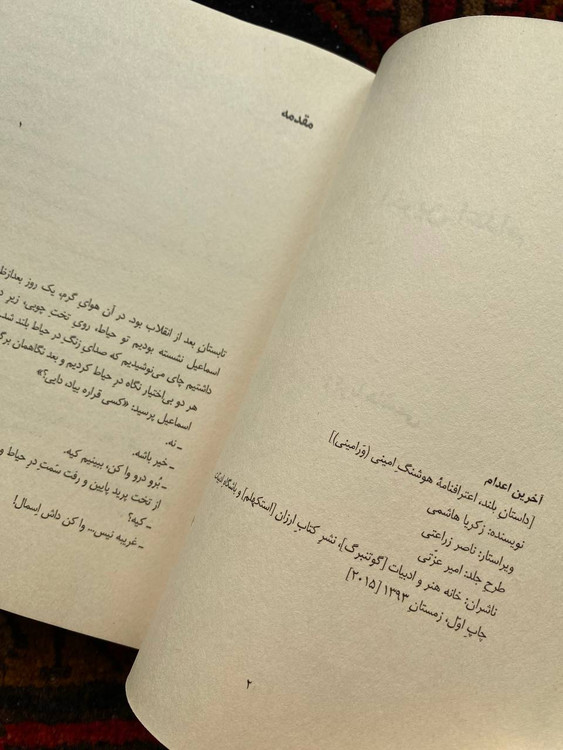 آخرین اعدام
[داستانِ بلند، اعترافنامهٔ هوشنگِ امینی (وَرامینی)]
نویسنده: زکریا هاشمی
ویراستار: ناصر زراعتی
طرحِ جلد: امیر عزّتی
ناشران: خانه هنر و ادبیات [گوتنبرگ]، نشرِ کتابِ ارزان [استکهلم] و باشگاه
چاپِ اوّل، زمستانِ ۱۳۹۳ [۲۰۱۵]
۲
مقدمه
۱
تابستانِ بعد از انقلاب بود. در آن هوایِ گرم، یک روز
اسماعیل نشسته بودیم تو حیاط، رویِ تختِ چوبی، زیر
داشتیم چای می‌نوشیدیم که صدایِ زنگِ درِ حیاط بلند شد.
هر دو بی‌اختیار نگاه درِ حیاط کردیم و بعد نگاهمان
اسماعیل پرسید: «کسی قراره بیاد، دایی؟»
ـ نه.
ـ خیر باشه.
ـ بُرو درو وا کن، ببینیم کیه.
از تخت پرید پایین و رفت سَمتِ درِ حیاط و
ـ کیه؟
ـ غریبه نیس... وا کن داش اِسمال!